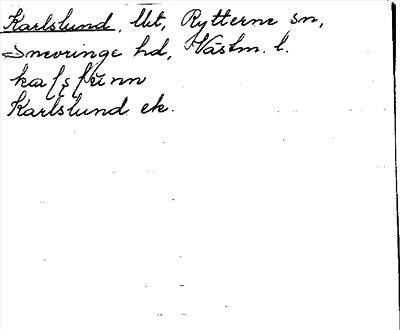 Karlslund, lht, Rytterne sn,
Snevringe hd, Västm. l.
Karlslund ek.